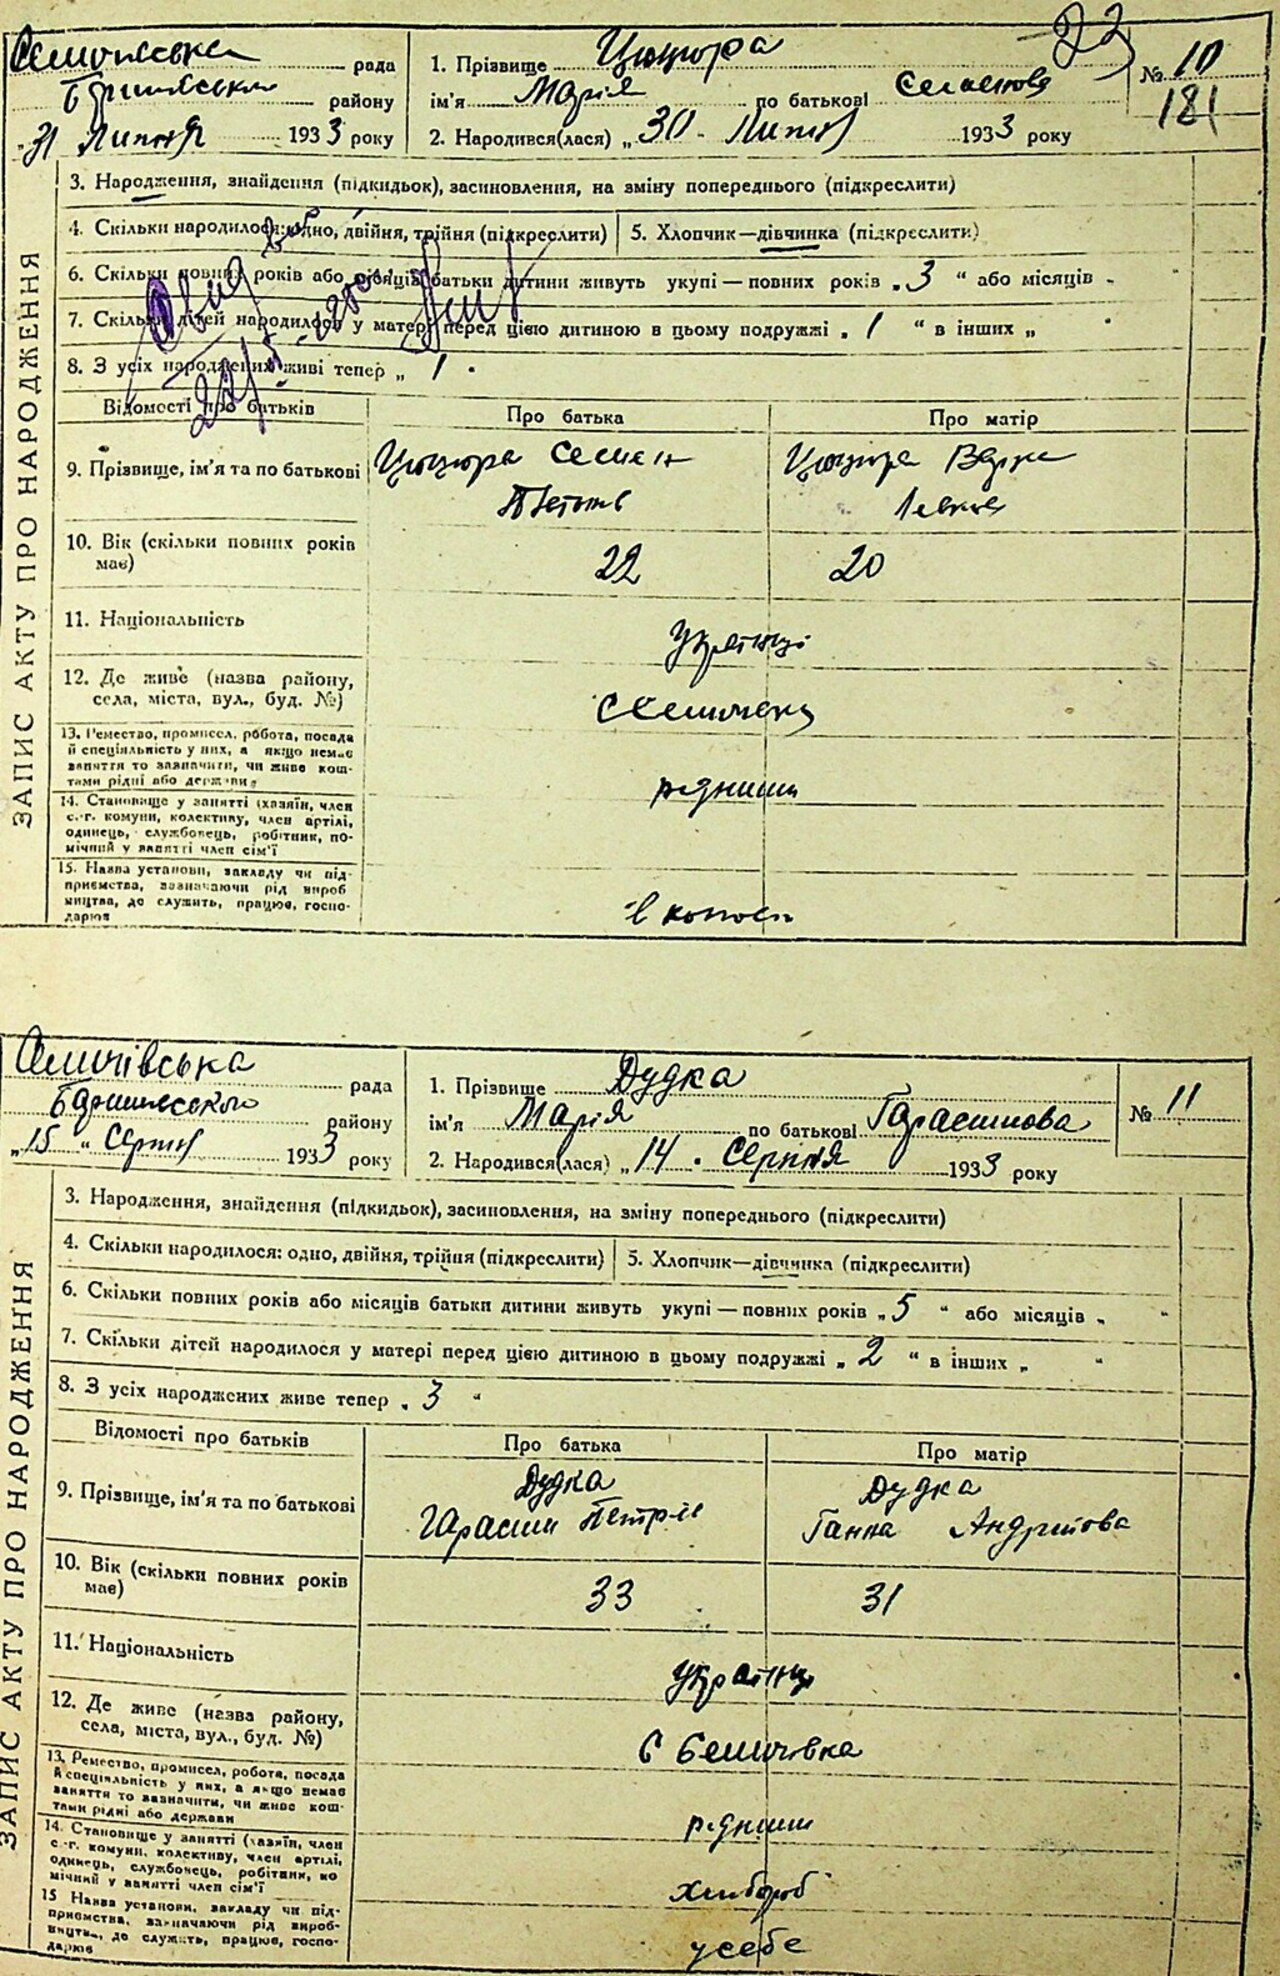 рада
району
31 Липня 1933 року
1. Прізвище Цюцюра
ім'я Марія по батькові Семенова
2. Народився(лася) „30 Липня 1933 року
23
№ 10
181
ЗАПИС АКТУ ПРО НАРОДЖЕННЯ
3. Народження, знайдення (підкидьок), засиновлення, на зміну попереднього (підкреслити)
4. Скільки народилося: одно, двійня, трійня (підкреслити) 5. Хлопчик—дівчинка (підкреслити)
6. Скільки повних років або місяців батьки дитини живуть укупі — повних років „3 “ або місяців „ “
7. Скільки дітей народилося у матері перед цією дитиною в цьому подружжі „ 1 “ в інших „ “
8. З усіх народжених живі тепер „ 1
Відомості про батьків Про батька Про матір
9. Прізвище, ім'я та по батькові Цюцюра Семен Цюцюра
10. Вік (скільки повних років має) 22 20
11. Національність Українці
12. Де живе (назва району,
села, міста, вул., буд. №)
13. Ремество, промисел, робота, посада
й спеціяльність у них, а якщо немає
заняття то зазначити, чи живе кош-
тами рідні або держави
14. Становище у занятті (хазяїн, член
с.-г. комуни, колективу, член артілі,
одинець, службовець, робітник, по-
мічний у занятті член сім'ї
15. Назва установи, закладу чи під-
приємства, зазначаючи рід вироб
ництва, де служить, працює, госпо-
дарює
Семичівська рада
району
„15 “ Серпня 1933 року
1. Прізвище Дудка
ім'я Марія по батькові Гарасимова
2. Народився(лася) „14 Серпня 1933 року
№ 11
ЗАПИС АКТУ ПРО НАРОДЖЕННЯ
3. Народження, знайдення (підкидьок), засиновлення, на зміну попереднього (підкреслити)
4. Скільки народилося: одно, двійня, трійня (підкреслити) 5. Хлопчик—дівчинка (підкреслити)
6. Скільки повних років або місяців батьки дитини живуть укупі — повних років „5 “ або місяців „ “
7. Скільки дітей народилося у матері перед цією дитиною в цьому подружжі „ 2 “ в інших „ “
8. З усіх народжених живе тепер „ 3 “
Відомості про батьків Про батька Про матір
Дудка Дудка
9. Прізвище, ім'я та по батькові Гарасим Ганна
10. Вік (скільки повних років має) 33 31
11. Національність Українці
12. Де живе (назва району,
села, міста, вул., буд. №)
13. Ремество, промисел, робота, посада
й спеціяльність у них, а якщо немає
заняття то зазначити, чи живе кош-
тами рідні або держави
14. Становище у занятті (хазяїн, член
с.-г. комуни, колективу, член артілі,
одинець, службовець, робітник, по
мічний у занятті член сім'ї
хлибороб
15 Назва установи, закладу чи під-
приємства, зазначаючи рід вироб-
ництва, де служить, працює, госпо-
дарює
у себе